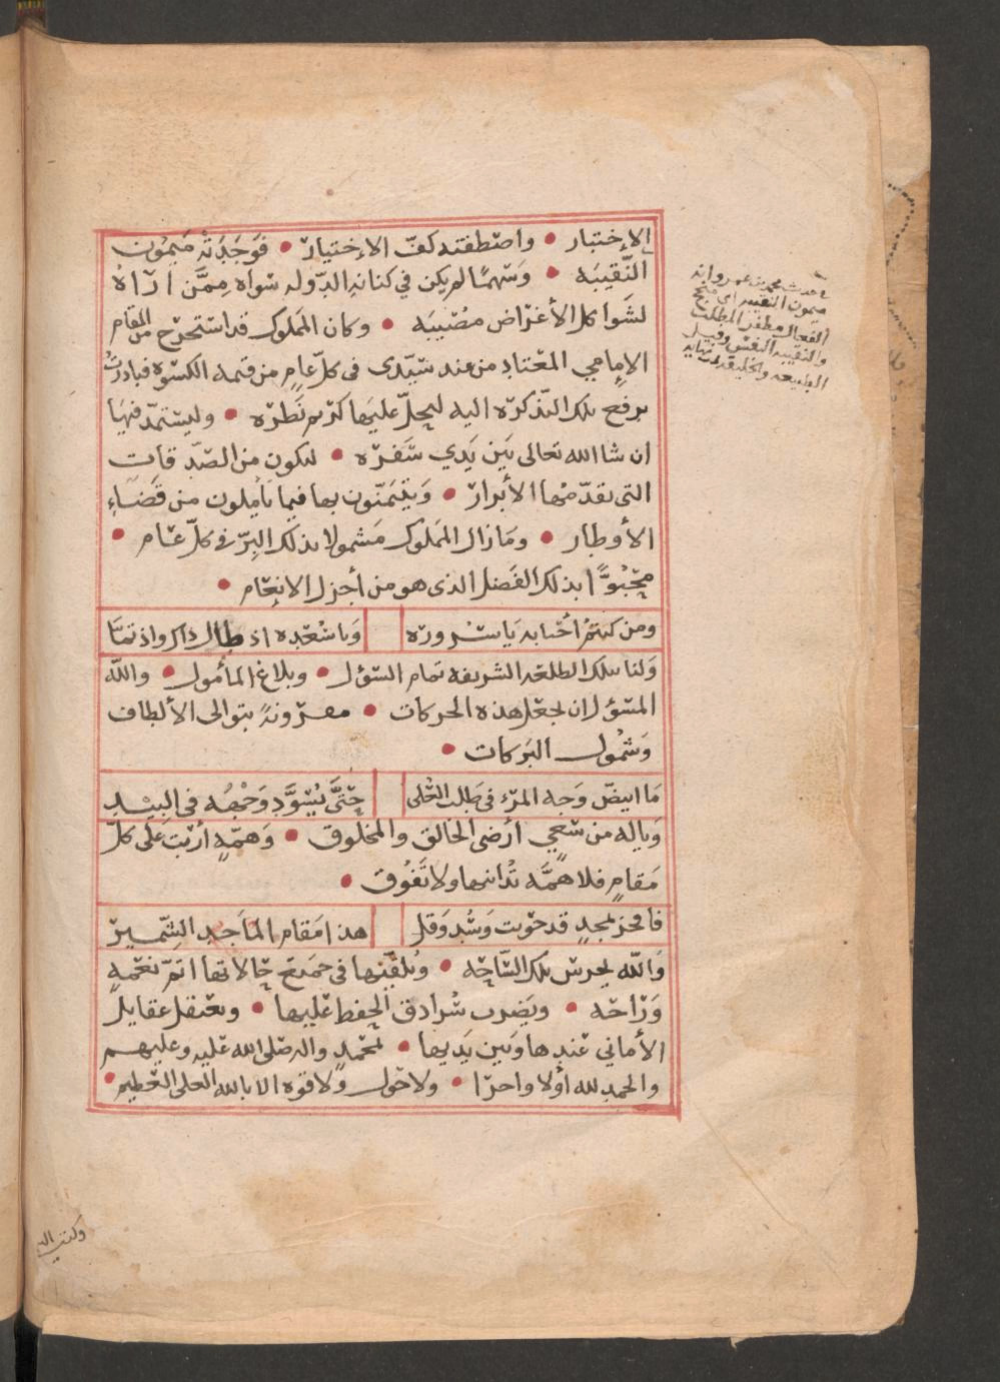 الإختبار • واصطفته كف الاختيار • فوجدته ميمون
النقيبه • وسهمًا لم يكن في كنانه الدوله سواه ممن اراه
لشوا كل الأغراض مصيبه • وكان المملوك قد استخرج من المقام
الإمامي المعتاد من عند سيدي في كل عام من قيمه الكسوه فبادرت
برفع تلك التذكره اليه ليجلّ عليها كريم نظره • وليستمد فيها
ان شا الله تعالى بين يدي سفره • لتكون من الصدقات
التي يقدمها الأبرار • ويتيمنون بها فيما يأملون من قضاء
الأوطار • وما زال المملوك مشمولا بذلك البر في كل عام •
محبوًّا بذلك الفضل الذي هو من أجزل الانعام •
ومن كنتم أحبابه يا سروره
ويا سعده اذ طال ذاك واذ تما
ولنا بتلك الطلعه الشريفه تمام السؤل • وبلاغ المأمول • والله
المسؤل ان يجعل هذه الحركات • مقرونهً بتوالى الألطاف
وشمول البركات •
ما ابيض وجه المرء في طلب العلى
حتَّى يسوَّد وجهه في البيد
وياله من سعي أرضى الخالق والمخلوق • وهمّه أربت على كلّ
مقامٍ فلا همَّه تدانيها ولا تفوق •
فافخر بمجدٍ قد حويت وسُد وقل
هذا مقام الماجد الشمير
والله يحرس تلك الساحه • ويلقيها في جميع حالاتها اتمّ نعمه
وراحه • ويضرب سرادق الحفظ عليها • ويعتقل عقايل
الأماني عندها وبين يديها • بمحمدٍ واله صلى الله عليه وعليهم
والحمد لله أولا واخرًا • ولا حول ولا قوه الا بالله العلى العظيم •
ميمون النقيبه اى منجح
الفعال مظفر المطلب
والنقيبه النفس وقيل
الطبيعه والخليقه